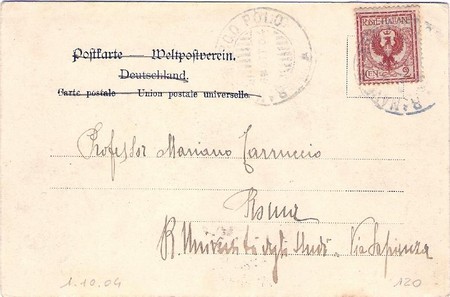 POSTE ITALIANE
CENT. 2
Postkarte — Weltpostverein.
Deutschland.
Carte postale — Union postale universelle.
Professor Mariano Carruccio
Roma
R. Università degli Studi - Via Sapienza
1.10.04
120